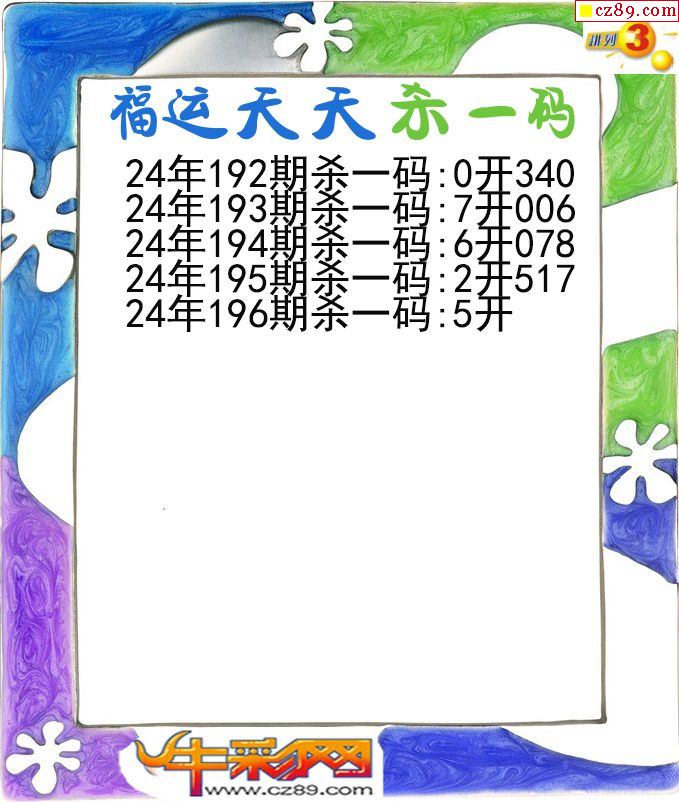 cz89.com
排列3
福运天天杀一码
24年192期杀一码:0开340
24年193期杀一码:7开006
24年194期杀一码:6开078
24年195期杀一码:2开517
24年196期杀一码:5开
牛彩网
www.cz89.com